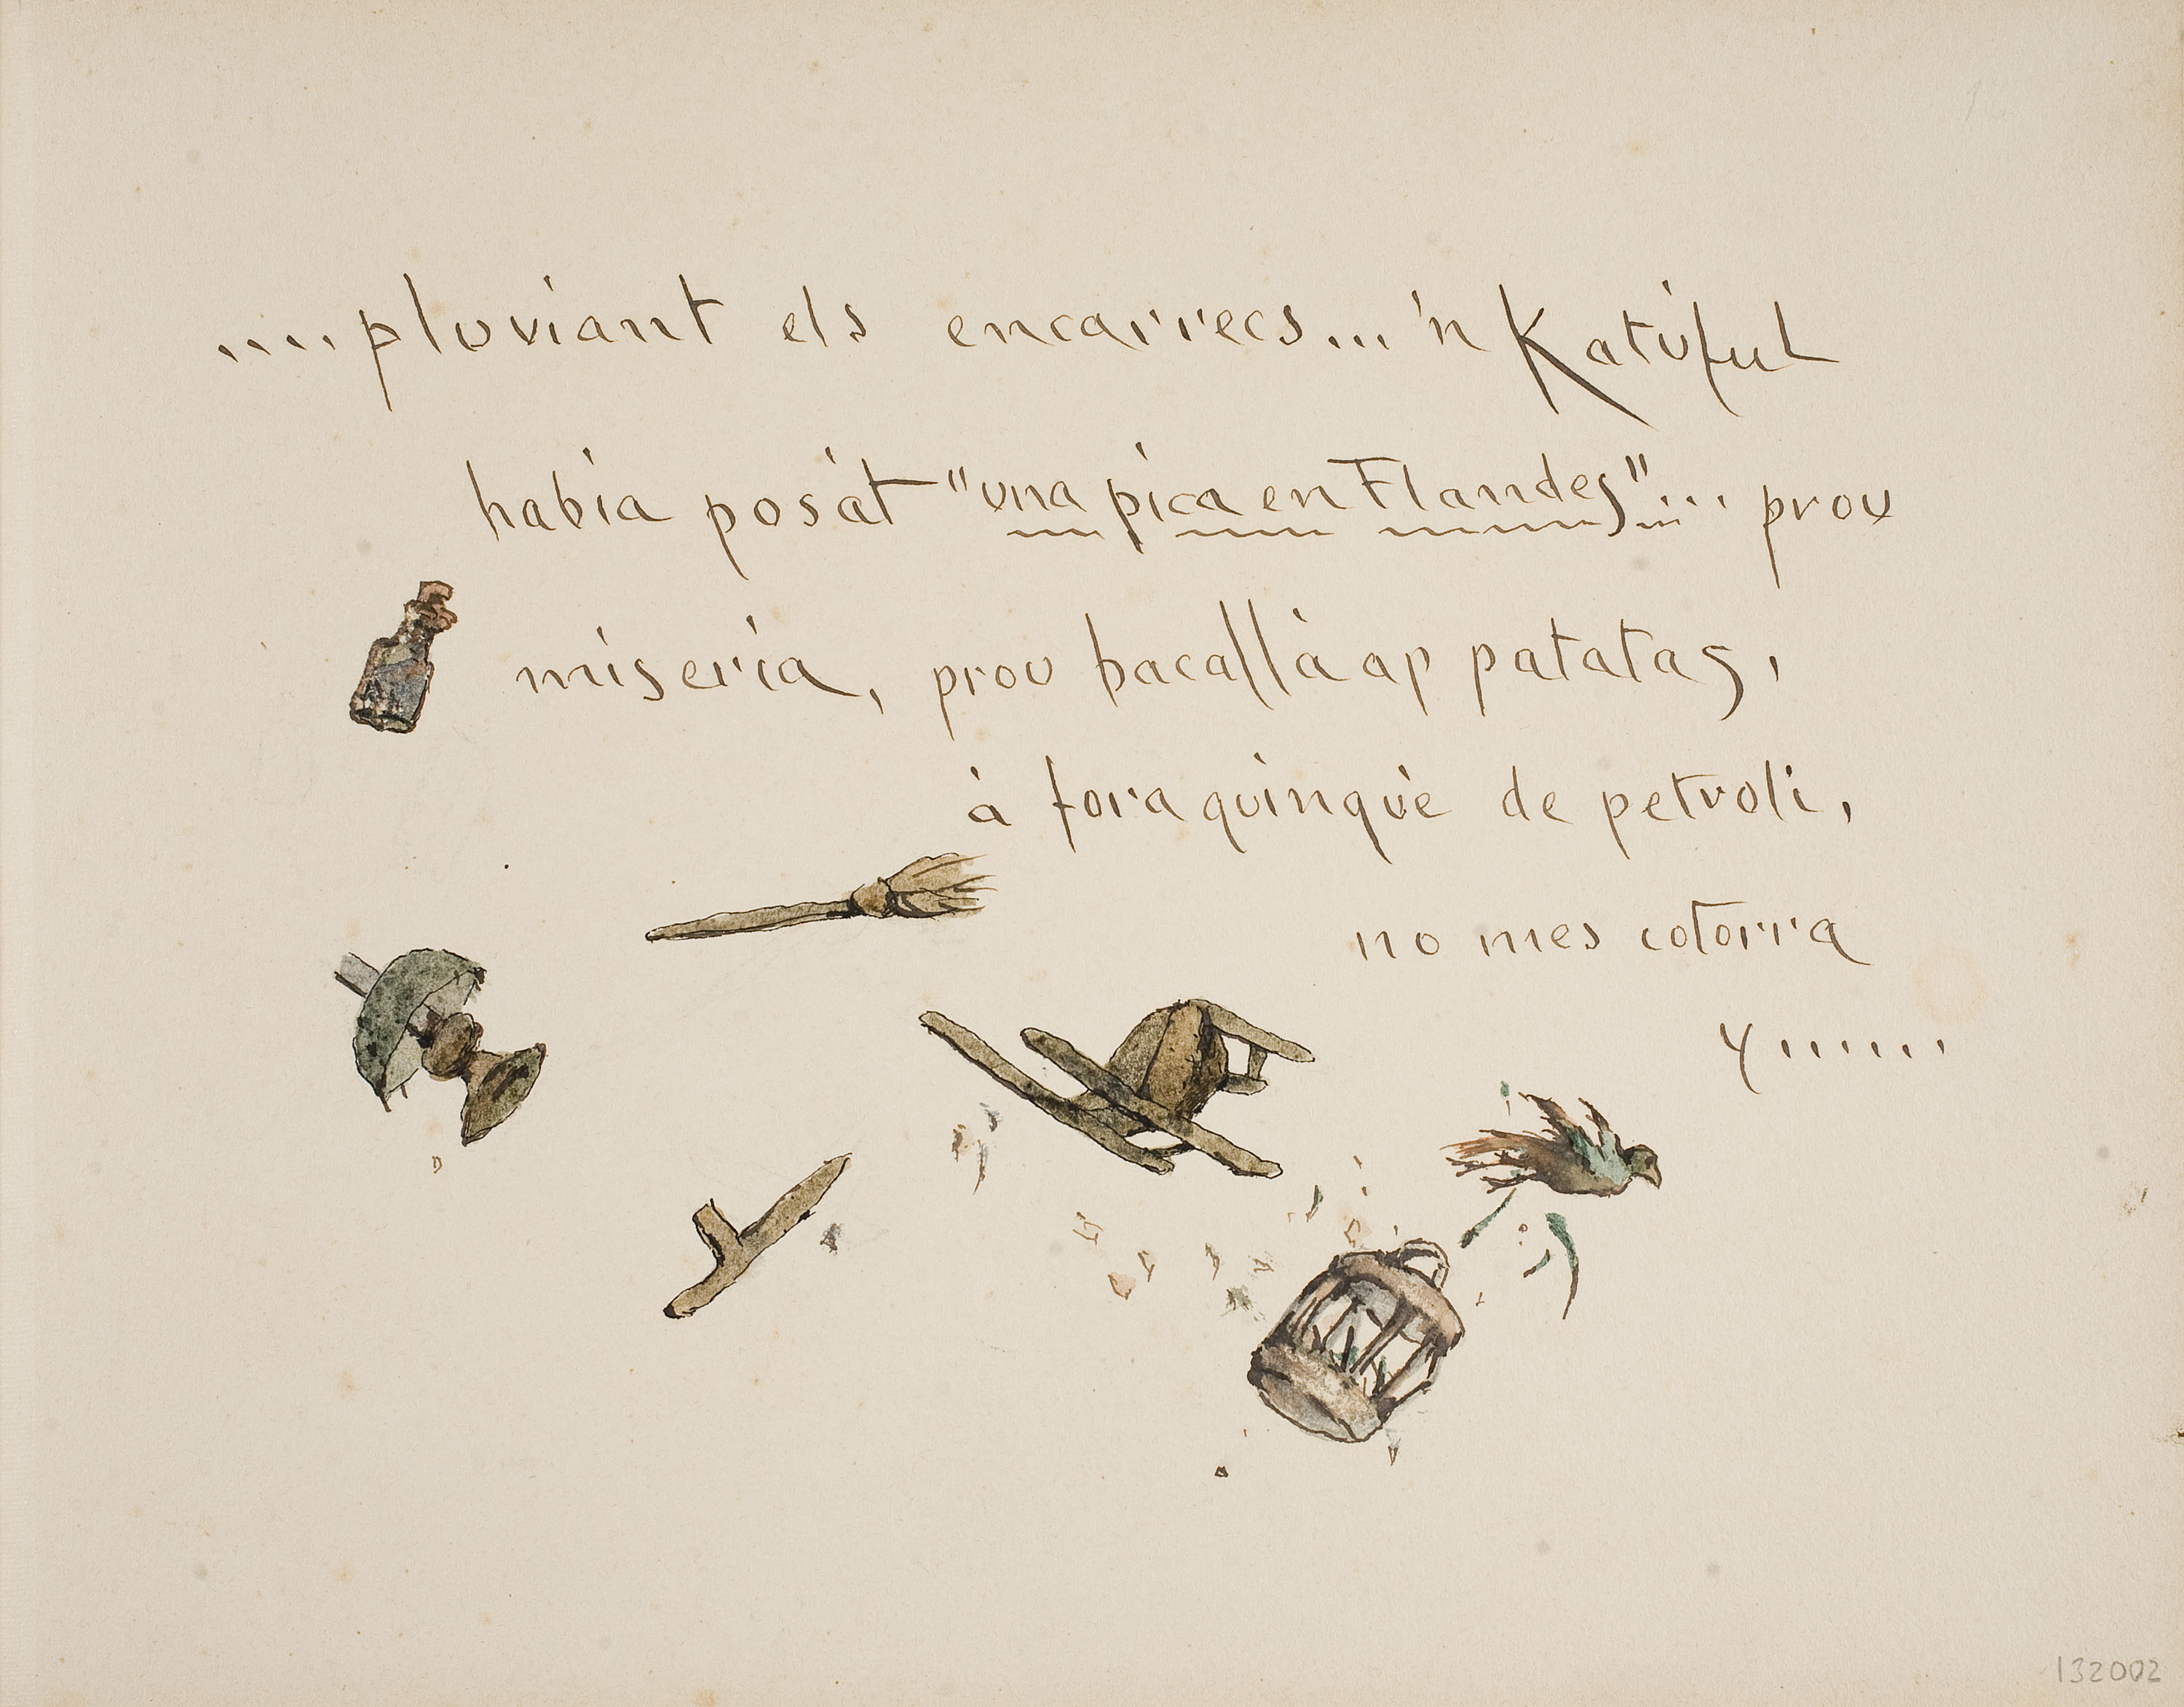 ....pluviant els encarrecs... 'n Katúful
habia posát "una pica en Flandes"... prou
miseria, prou bacallà ap patatas,
à fora quinqùe de petroli,
no mes cotorra
y......
132002